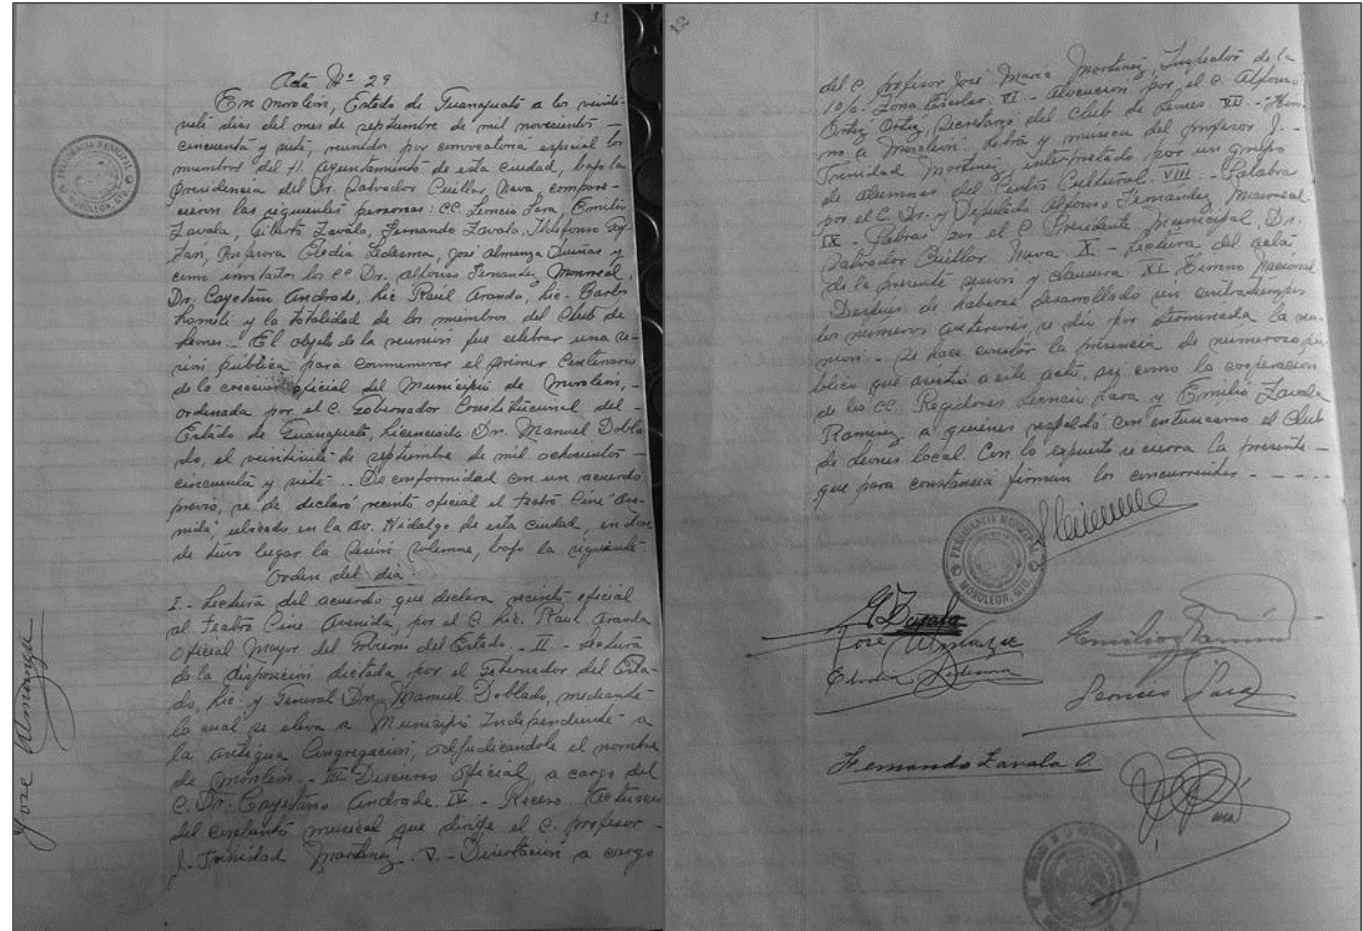 11
Acta Nº 29
En Moroleón, Estado de Guanajuato a los veinti-
siete días del mes de septiembre de mil novecientos
cincuenta y siete, reunidos por convocatoria especial los
miembros del H. Ayuntamiento de esta ciudad, bajo la
Presidencia del Dr. Salvador Cuillar Nava, compare-
cieron las siguientes personas: CC. Leoncio Lara, Emilio
Zavala, Gilberto Zavala, Fernando Zavala, Ildefonso
Elodia Ledesma, José Almanza y
como invitados los CC Dr. Alfonso Fernandez Monreal,
Dr. Cayetano Andrade, Lic Raúl Aranda, Lic.
y la totalidad de los miembros del Club de
Leones. - El objeto de la reunión fue celebrar una se-
sión pública para conmemorar el primer Centenario
de la oficial del Municipio de Moroleón, -
ordenada por el C. Gobernador Constitucional del -
Estado de Guanajuato, Licenciado Dn. Manuel Dobla
do, el veintisiete de septiembre de mil ochocientos -
cincuenta y siete .. De conformidad con un acuerdo
previo, se declaró recinto oficial el teatro Cine "Ave-
nida", ubicado en la Av. Hidalgo de esta ciudad, en don
de tuvo lugar la Sesión Solemne, bajo la siguiente
Orden del día.
I. - Lectura del acuerdo que declara recinto oficial
al teatro Cine Avenida, por el C. Lic. Raúl Aranda
Oficial Mayor del Gobierno del Estado. - II. - Lectura
de la disposición dictada por el Gobernador del Esta-
do, Lic. y General Dn. Manuel Doblado, mediante
la cual se eleva a Municipio Independiente a
la antigua Congregación, adjudicandole el nombre
de Moroleón. - III Discurso Oficial, a cargo del
C. Dr. Cayetano Andrade. IV. - Receso. Actuación
del conjunto musical que dirige el C. profesor -
J. Trinidad Martínez. V. - Disertación a cargo
José Almanza
PRESIDENCIA MUNICIPAL
MOROLEON, GTO.
12
del C. profesor José María Martínez, Inspector de la
10/a. Zona Escolar. VI - Alocución por el C. Alfonso
Ortiz Ortiz, Secretario del Club de Leones. VII. - Him-
no a Moroleón. letra y musica del profesor J. -
Trinidad Martínez, interpretado por un grupo
de alumnas del Centro Cultural. VIII. - Palabra
por el C. Dr. y Diputado Alfonso Fernández Monreal
IX - Palabras por el C. Presidente Municipal, Dr.
Salvador Cuillar Nava X - Lectura del acta
de la presente sesión y clausura XI. Himno Nacional
Después de haberse desarrollado sin contratiempo
los numeros anteriores, se dió por terminada la reu-
nión. - Se hace constar la presencia de numeroso pú
blico que asistió a este acto, así como la cooperación
de los CC. Regidores Leoncio Lara y Emilio Zavala
Ramírez a quienes respaldó con entusiasmo el Club
de Leones local. Con lo expuesto se cierra la presente -
que para constancia firman los concurrentes - - - - -
PRESIDENCIA MUNICIPAL
MOROLEON, GTO.
Elodia Ledesma
Leoncio Lara
Fernando Zavala O.